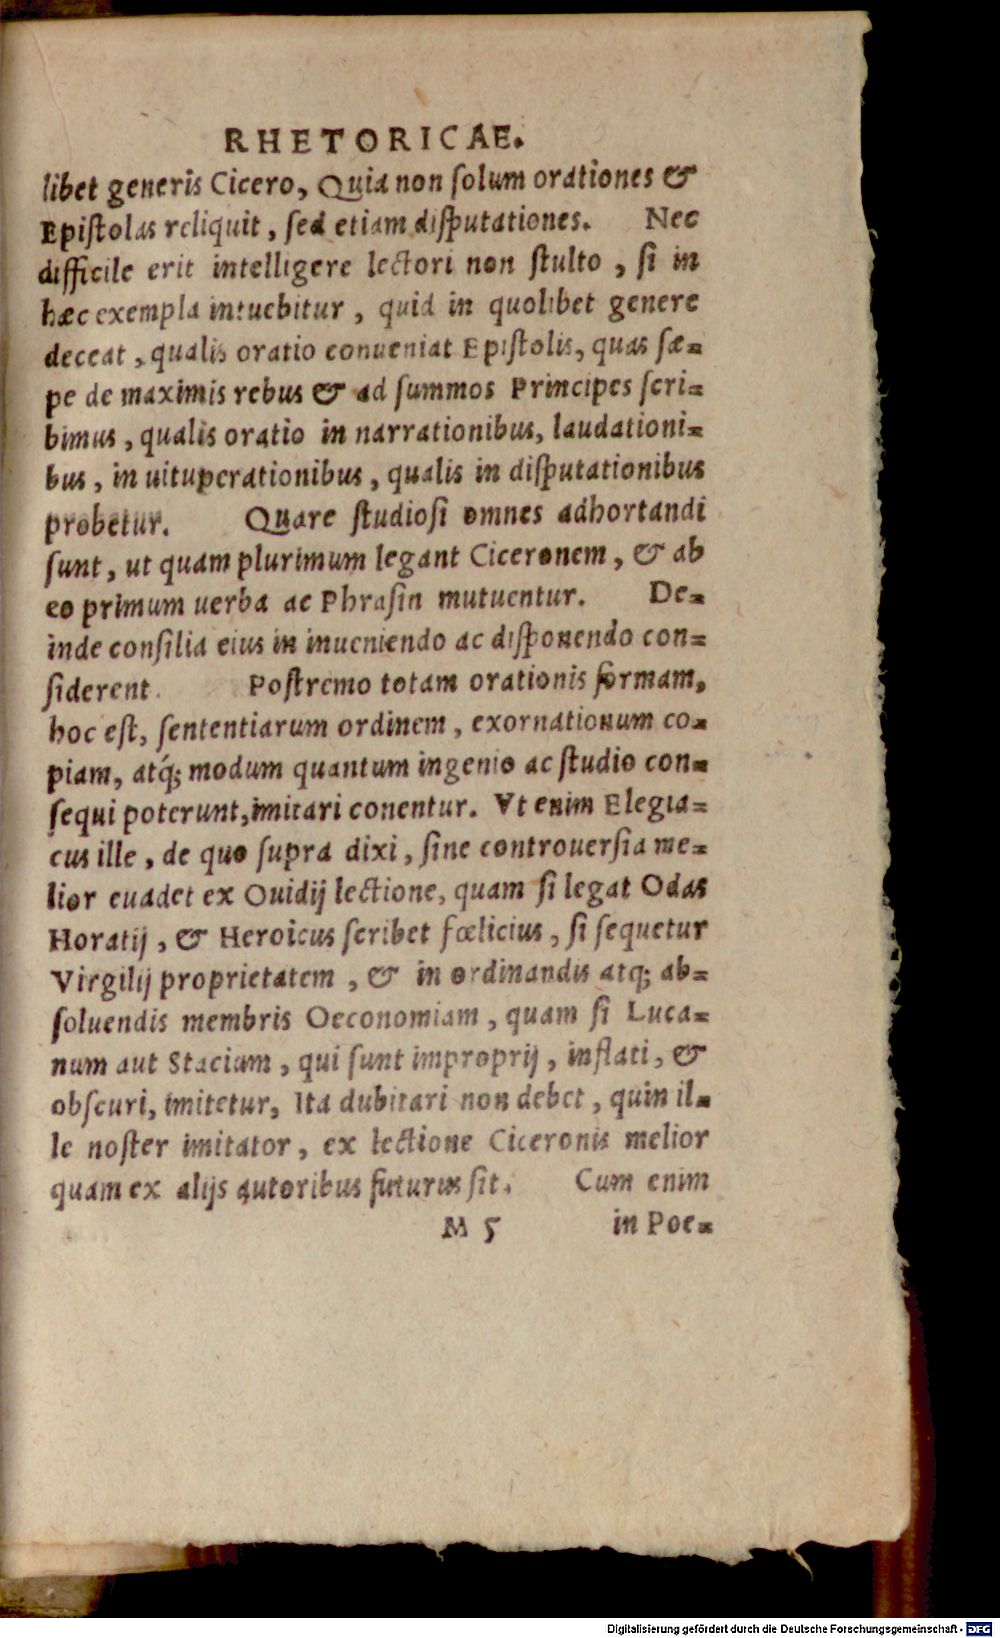 RHETORICAE.
libet generis Cicero, Quia non ſolum orationes &
Epiſtolas reliquit, ſed etiam diſputationes. Nec
difficile erit intelligere lectori non ſtulto, ſi in
hæc exempla intuebitur, quid in quolibet genere
deceat, qualis oratio conueniat Epiſtolis, quas ſæ-
pe de maximis rebus & ad ſummos Principes ſcri-
bimus, qualis oratio in narrationibus, laudationi-
bus, in uituperationibus, qualis in diſputationibus
probetur. Quare ſtudioſi omnes adhortandi
ſunt, ut quam plurimum legant Ciceronem, & ab
eo primum uerba ac Phraſin mutuentur. De-
inde conſilia eius in inueniendo ac diſponendo con-
ſiderent. Poſtremo totam orationis formam,
hoc eſt, ſententiarum ordinem, exornationum co-
piam, atq́; modum quantum ingenio ac ſtudio con-
ſequi poterunt, imitari conentur. Vt enim Elegia-
cus ille, de quo ſupra dixi, ſine controuerſia me-
lior euadet ex Ouidij lectione, quam ſi legat Odas
Horatij, & Heroicus ſcribet fœlicius, ſi ſequetur
Virgilij proprietatem, & in ordinandis atq; ab-
ſoluendis membris Oeconomiam, quam ſi Luca-
num aut Stacium, qui ſunt improprij, inflati, &
obſcuri, imitetur, Ita dubitari non debet, quin il-
le noſter imitator, ex lectione Ciceronis melior
quam ex alijs autoribus futurus ſit. Cum enim
M 5 in Poe-
Digitalisierung gefördert durch die Deutsche Forschungsgemeinschaft - DFG